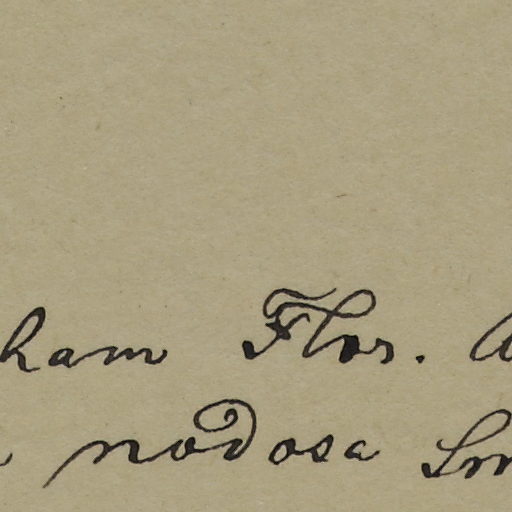 ham Flor.
nodosa